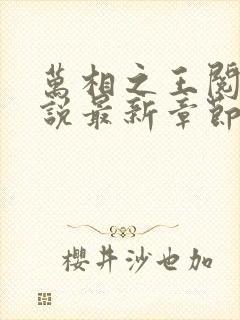 萬相之王閱
說最新章節
櫻井沙也加